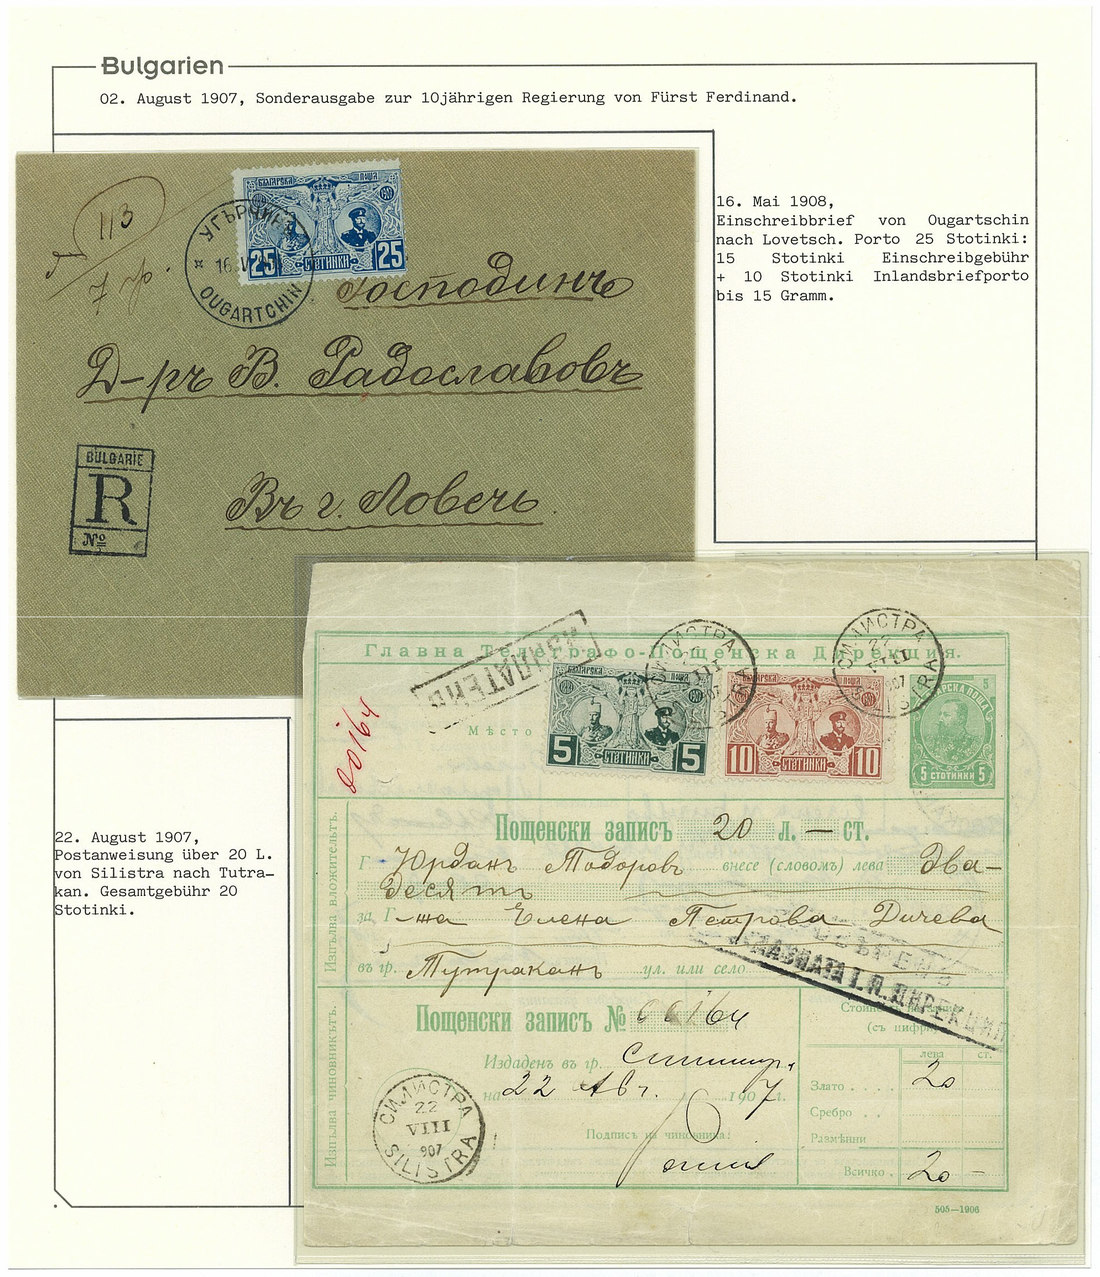 Bulgarien
02. August 1907, Sonderausgabe zur 10jährigen Regierung von Fürst Ferdinand.
16. Mai 1908,
Einschreibbrief von Ougartschin
nach Lovetsch. Porto 25 Stotinki:
15 Stotinki Einschreibgebühr
+ 10 Stotinki Inlandsbriefporto
bis 15 Gramm.
113
7 гр.
БЪЛГАРСКА ПОЩА
25 СТОТИНКИ 25
УГЪРЧИНЪ
16
OUGARTCHIN
Господинъ
Д-ръ В. Радославовъ
Въ г. Ловечъ
BULGARIE
R
№
Главна Телеграфо-Пощенска Дирекция.
СИЛИСТРА
22
VIII
907
SILISTRA
СИЛИСТРА
22
VIII
907
SILISTRA
00164
Мѣсто
5 СТОТИНКИ 5
10 СТОТИНКИ 10
БЪЛГАРСКА ПОЩА 5
5 СТОТИНКИ 5
22. August 1907,
Postanweisung über 20 L.
von Silistra nach Tutra-
kan. Gesamtgebühr 20
Stotinki.
Изпълва вложительтъ.
Пощенски записъ 20 л. — ст.
Г Юрданъ Тодоровъ внесе (словомъ) лева Два-
десять
за Г-жа Елена Петрова Дичева
въ гр. Тутраканъ ул. или село
ГЛАВНАТА Т. П. ДИРЕКЦИЯ
Изпълва чиновникътъ.
Пощенски записъ № 00164
Издаденъ въ гр.
на 22 Авг. 1907 г.
Подпись на чиновника:
(съ цифри)
лева ст.
Злато 20
Сребро
Размѣнни
Всичко 20 —
СИЛИСТРА
22
VIII
907
SILISTRA
505—1906